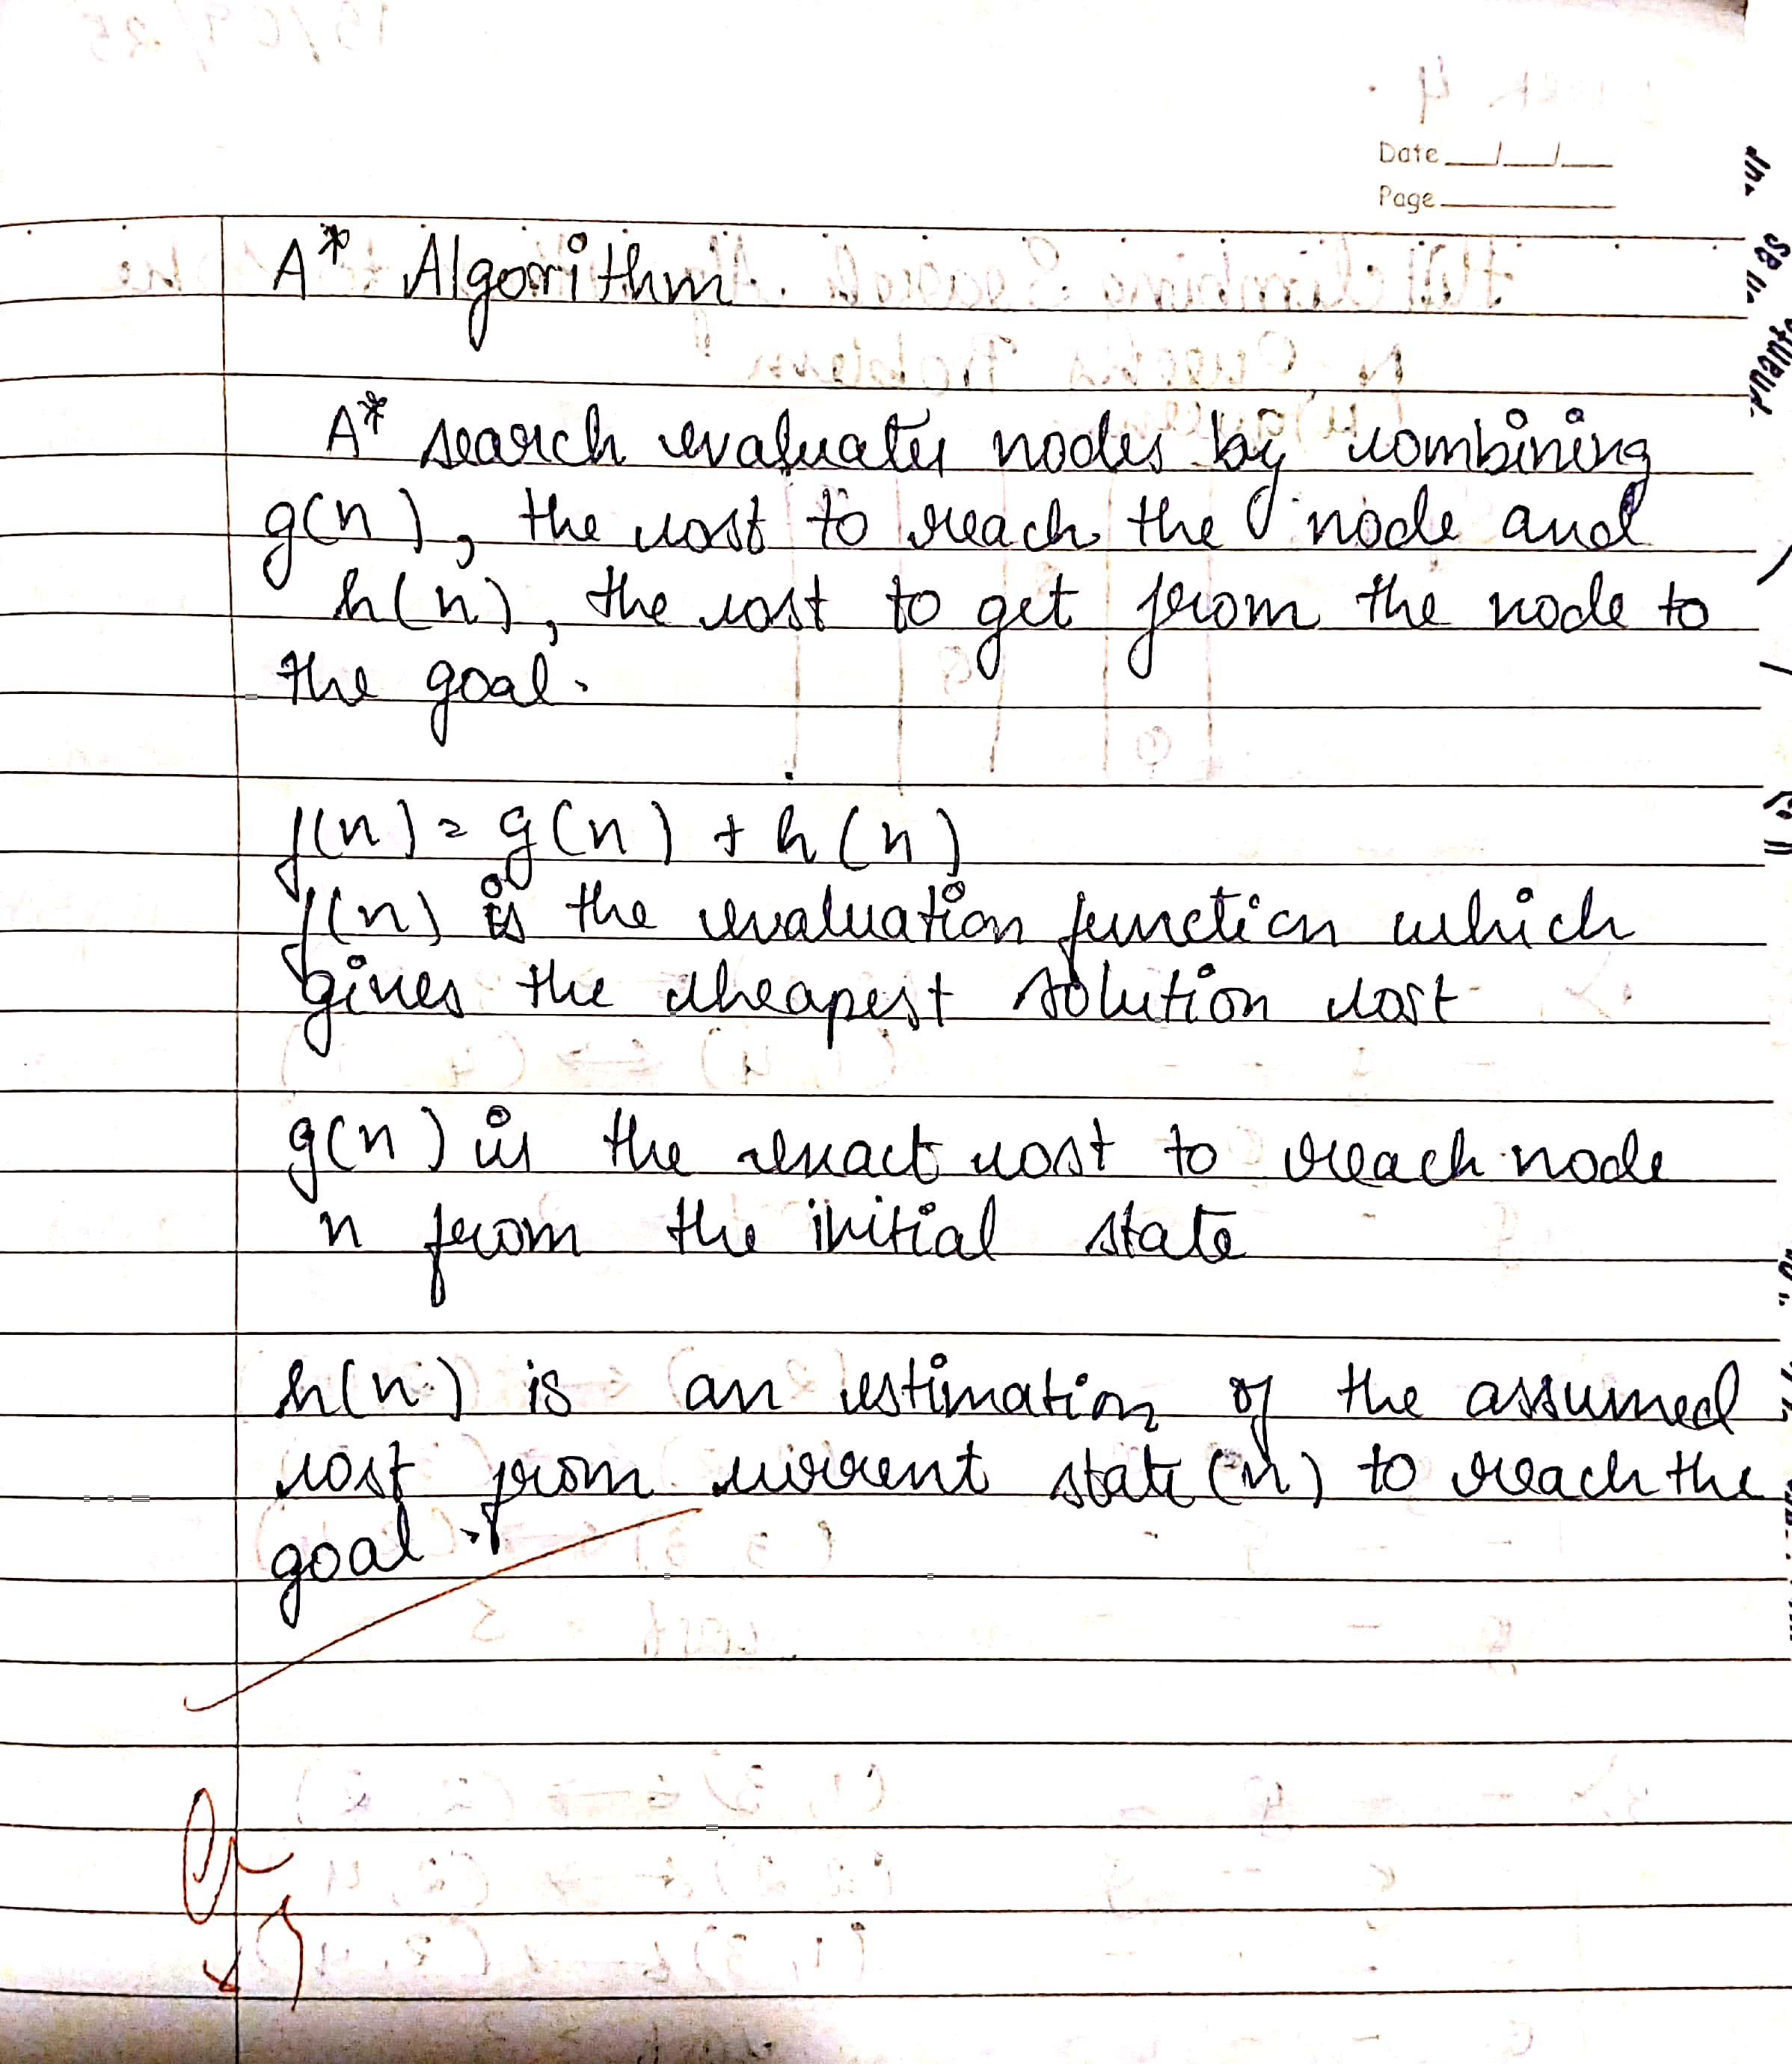 Date
Page
A* Algorithm
A* search evaluates nodes by combining
g(n), the cost to reach the node and
h(n), the cost to get from the node to
the goal.
f(n) = g(n) + h(n)
f(n) is the evaluation function which
gives the cheapest solution cost
g(n) is the exact cost to reach node
n from the initial state
h(n) is an estimation of the assumed
cost from current state (n) to reach the
goal.